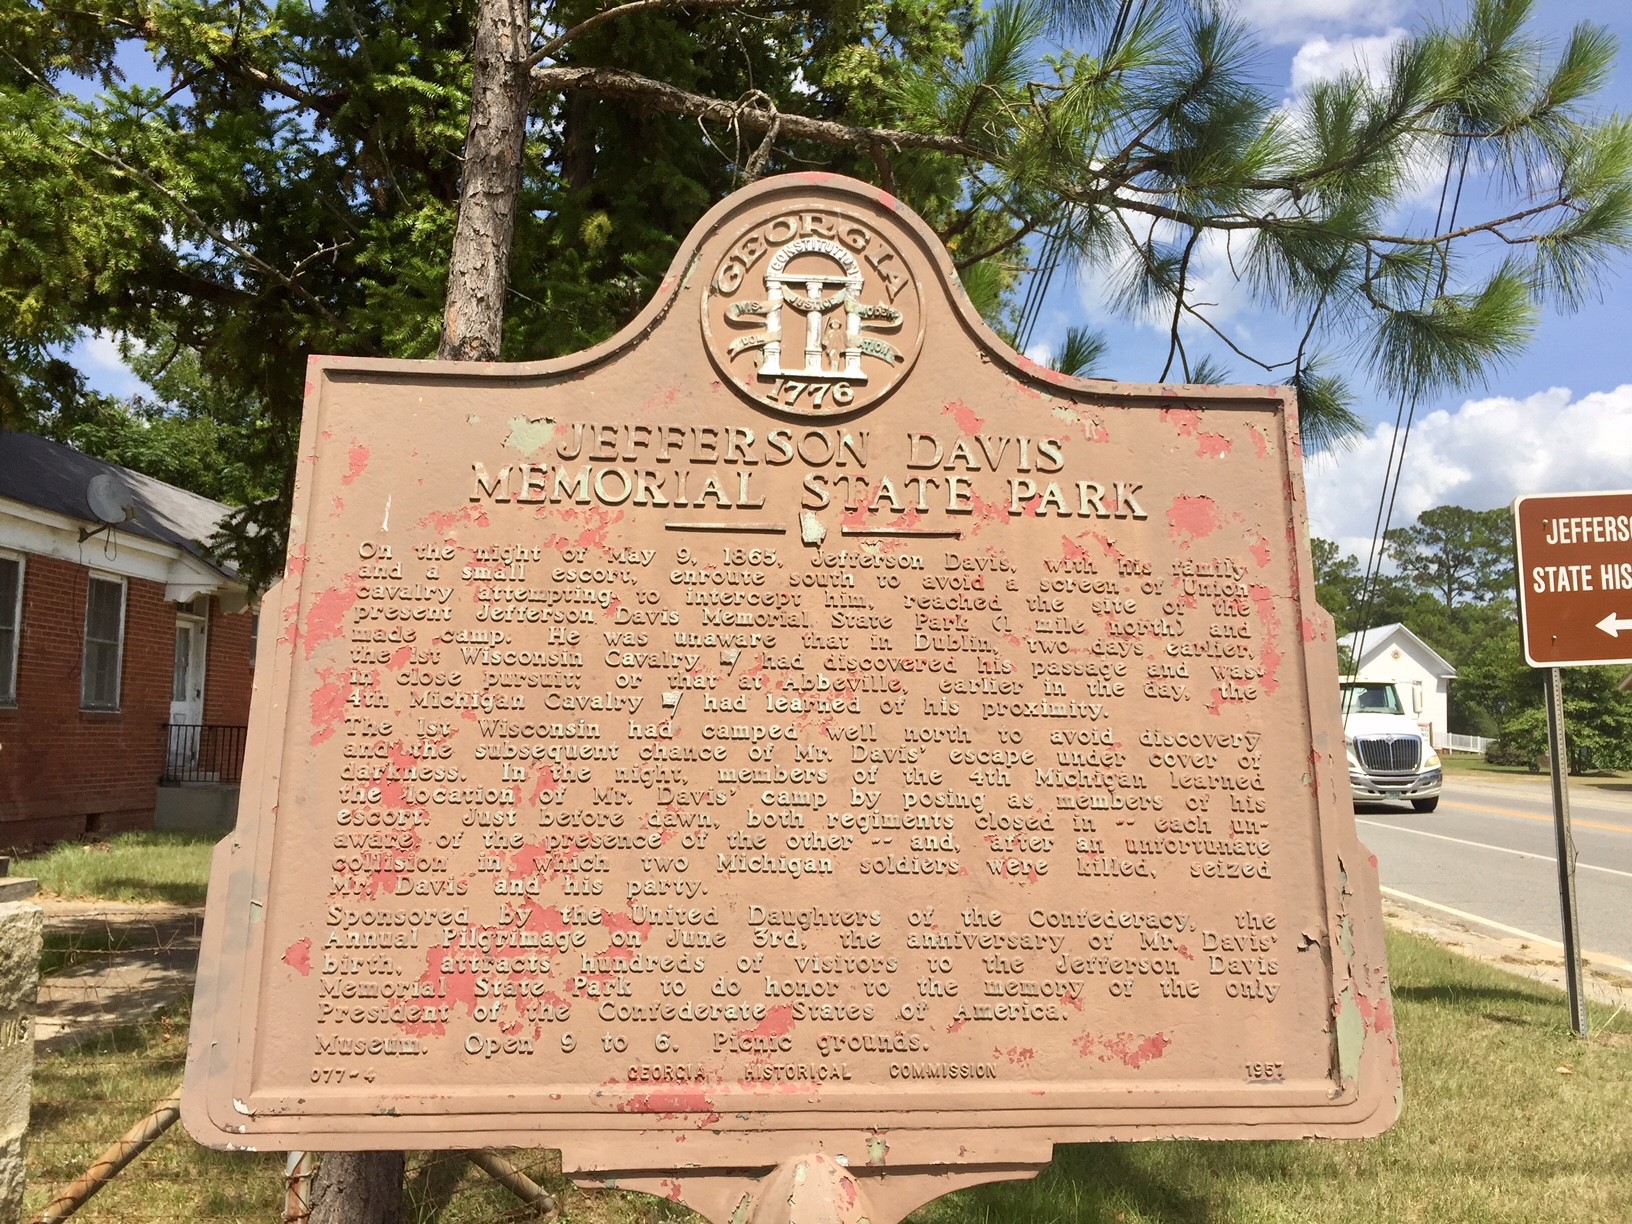 GEORGIA
CONSTITUTION
JUSTICE
1776
JEFFERSON DAVIS
MEMORIAL STATE PARK
On the night of May 9, 1865, Jefferson Davis, with his family
and a small escort, enroute south to avoid a screen of Union
cavalry attempting to intercept him, reached the site of the
present Jefferson Davis Memorial State Park (1 mile north) and
made camp. He was unaware that in Dublin, two days earlier,
the 1st Wisconsin Cavalry had discovered his passage and was
in close pursuit; or that at Abbeville, earlier in the day, the
4th Michigan Cavalry had learned of his proximity.
The 1st Wisconsin had camped well north to avoid discovery
and the subsequent chance of Mr. Davis' escape under cover of
darkness. In the night, members of the 4th Michigan learned
the location of Mr. Davis' camp by posing as members of his
escort. Just before dawn, both regiments closed in -- each un-
aware of the presence of the other -- and, after an unfortunate
collision in which two Michigan soldiers were killed, seized
Mr. Davis and his party.
Sponsored by the United Daughters of the Confederacy, the
Annual Pilgrimage on June 3rd, the anniversary of Mr. Davis'
birth, attracts hundreds of visitors to the Jefferson Davis
Memorial State Park to do honor to the memory of the only
President of the Confederate States of America.
Museum. Open 9 to 6. Picnic grounds.
077-4 GEORGIA HISTORICAL COMMISSION 1957
JEFFERSO
STATE HIS